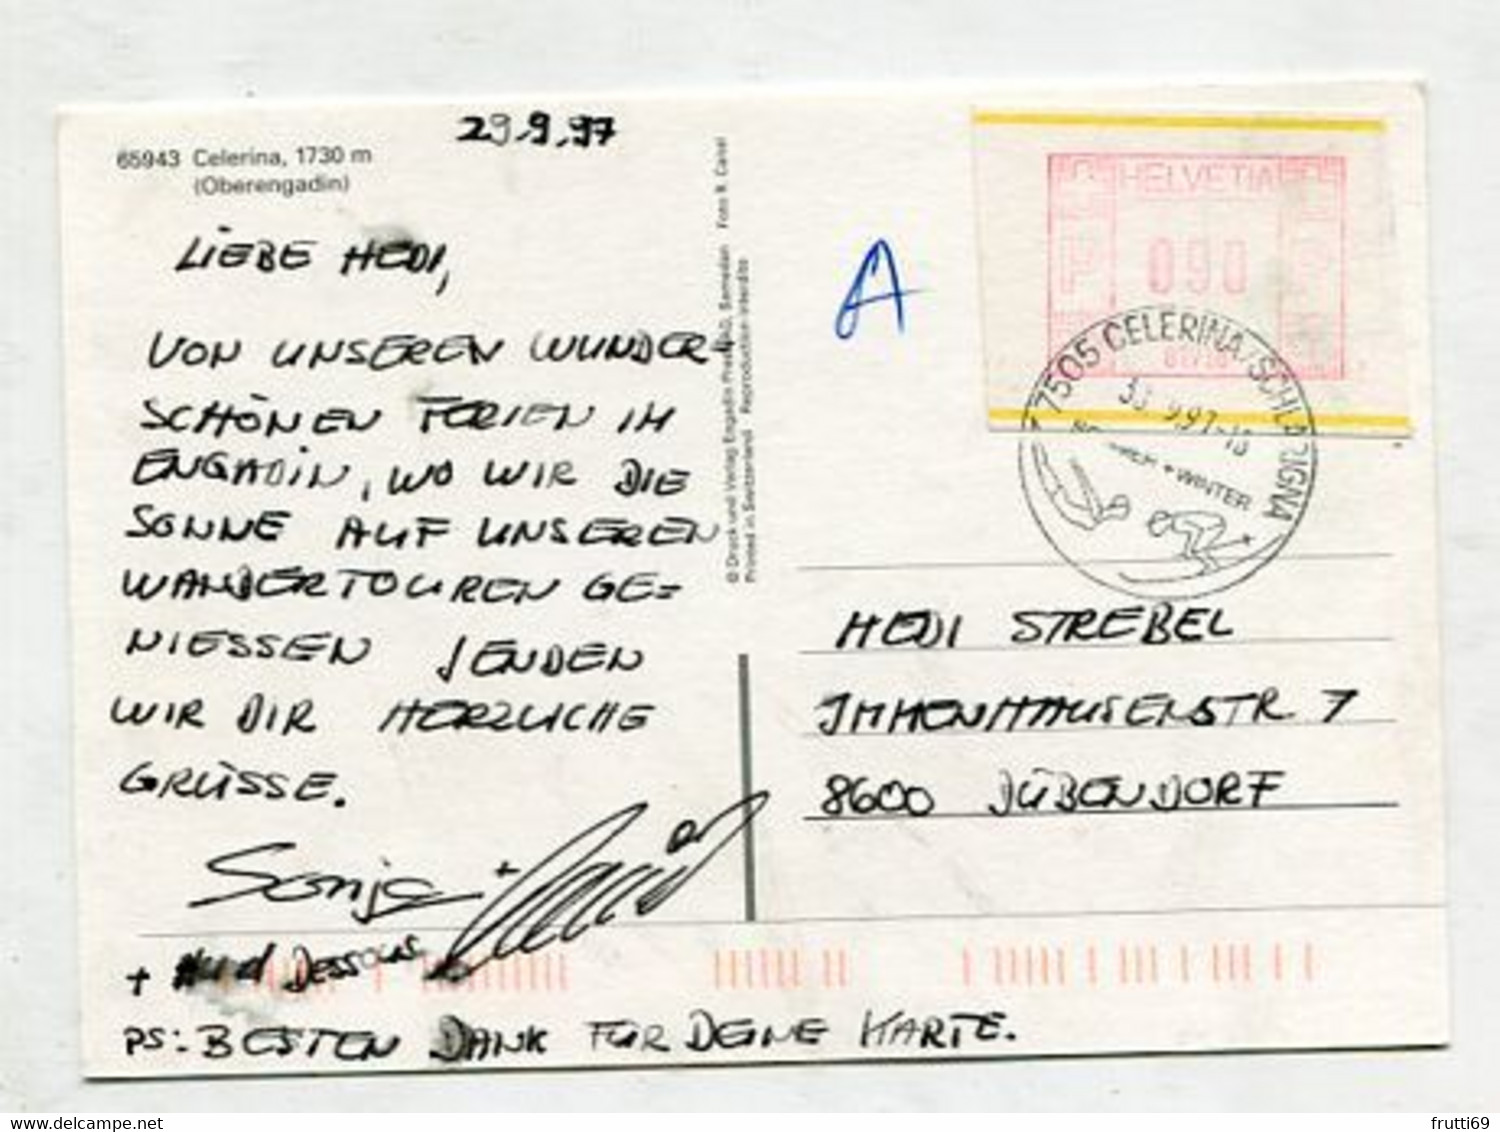 65943 Celerina, 1730 m
(Oberengadin)
29.9.97
LIEBE HEDI,
VON UNSEREN WUNDER-
SCHÖNEN FERIEN IM
ENGADIN, WO WIR DIE
SONNE AUF UNSEREN
WANDERTOUREN GE=
NIESSEN SENDEN
WIR DIR HERZLICHE
GRÜSSE.
Sonja +
+ Hund Dessous
PS: BESTEN DANK FÜR DEINE KARTE.
© Druck und Verlag Engadin Press AG, Samedan Foto R. Canal
Printed in Switzerland Reproduction interdite
A
HELVETIA
090
7505 CELERINA/SCHLARIGNA
30.9.97-18
SOMMER + WINTER
HEDI STREBEL
IMMENHAUSERSTR. 7
8600 DÜBENDORF
frutti69
delcampe.net